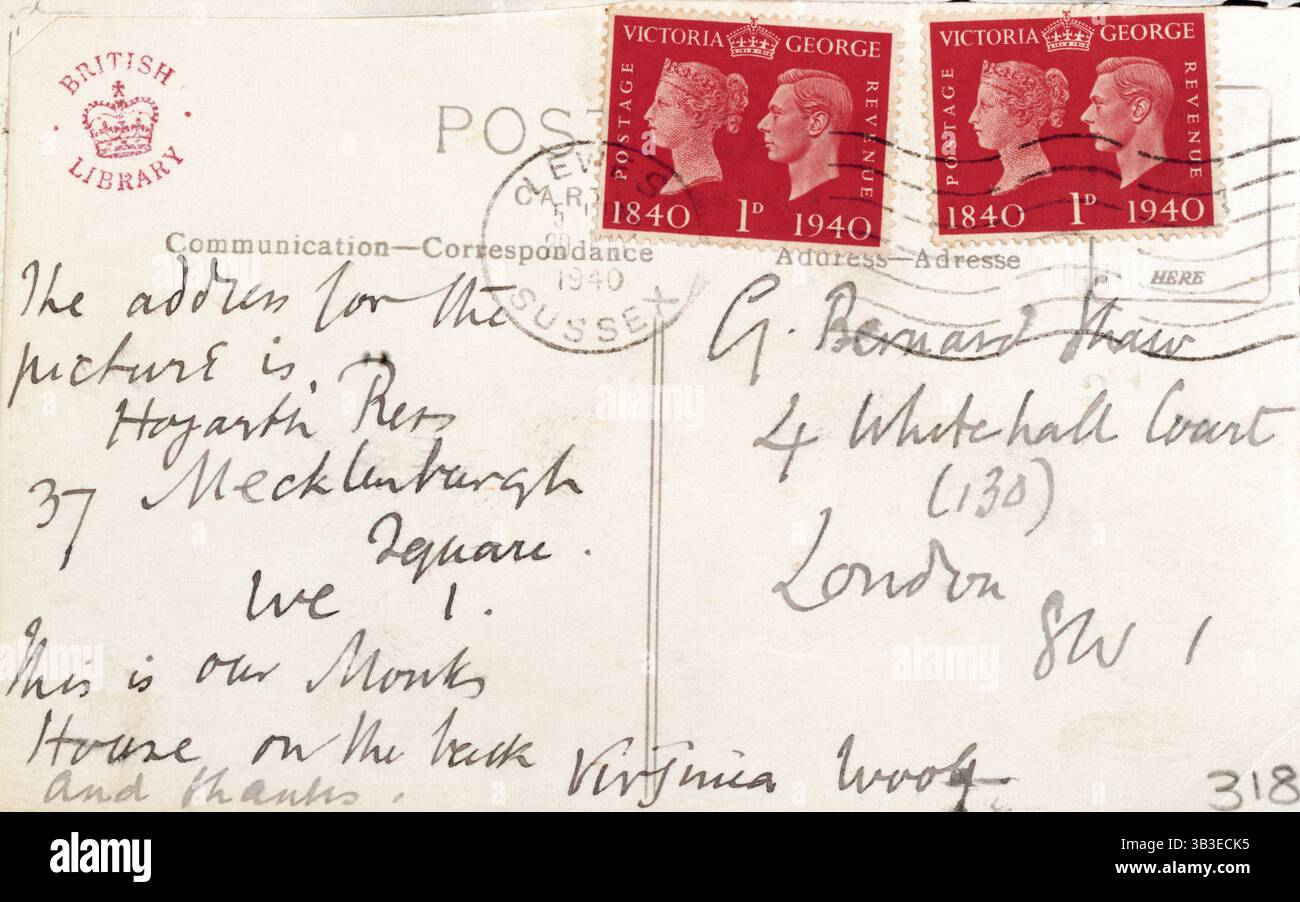 BRITISH
LIBRARY
POST
CARD
VICTORIA GEORGE
POSTAGE REVENUE
1840 1D 1940
VICTORIA GEORGE
POSTAGE REVENUE
1840 1D 1940
LEWES
1940
SUSSEX
HERE
Communication—Correspondance
Address—Adresse
The address for the
picture is
Hogarth Press
37 Mecklenburgh
Square.
WC 1.
This is our Monks
House on the back
and thanks.
G. Bernard Shaw
4 Whitehall Court
(130)
London
SW 1
Virginia Woolf
318
alamy
Image ID: 3B3ECK5
www.alamy.com